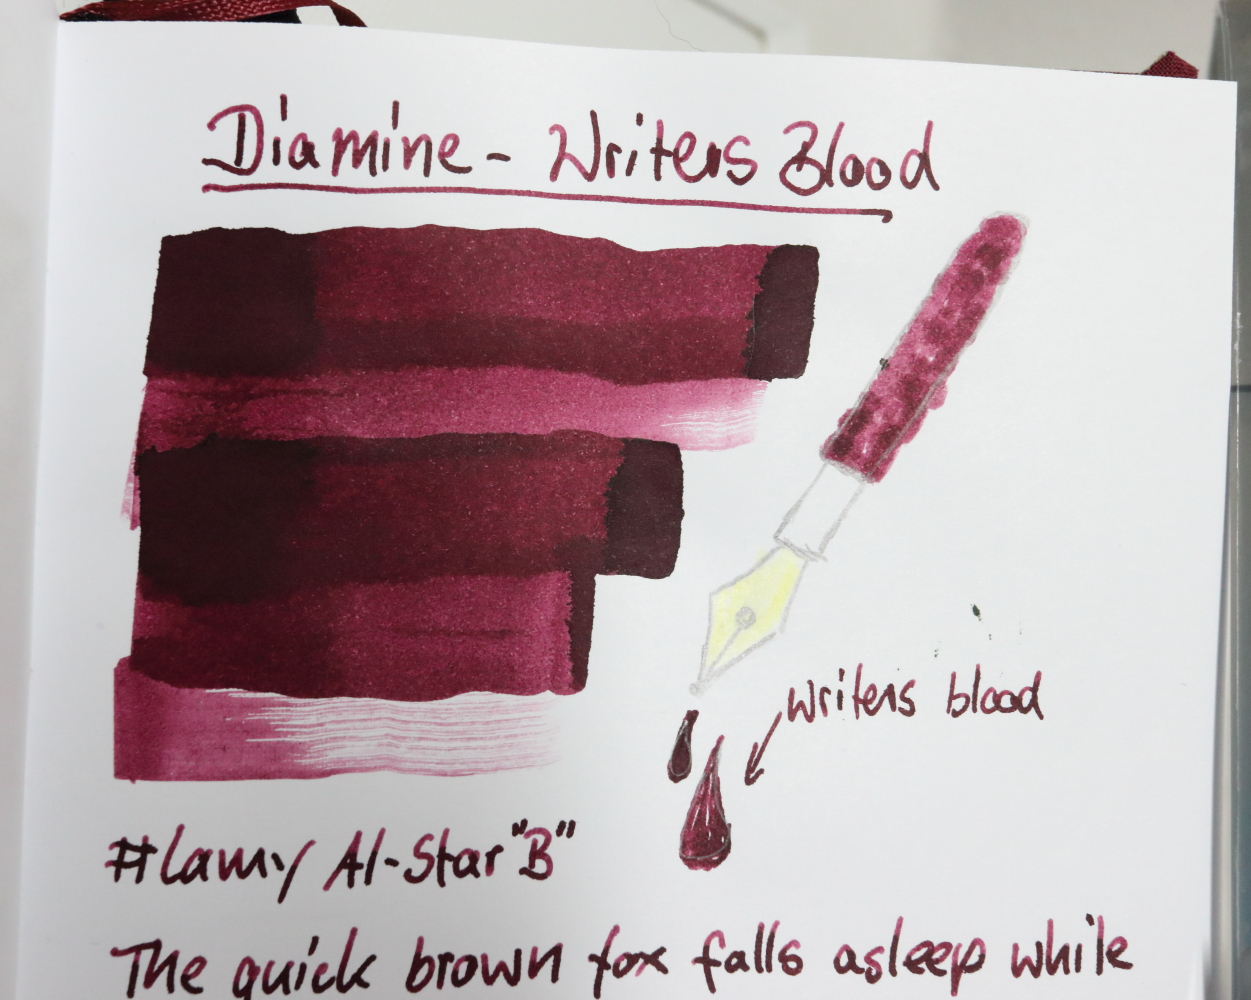 Diamine - Writers Blood
writers blood
#Lamy Al-Star "B"
The quick brown fox falls asleep while